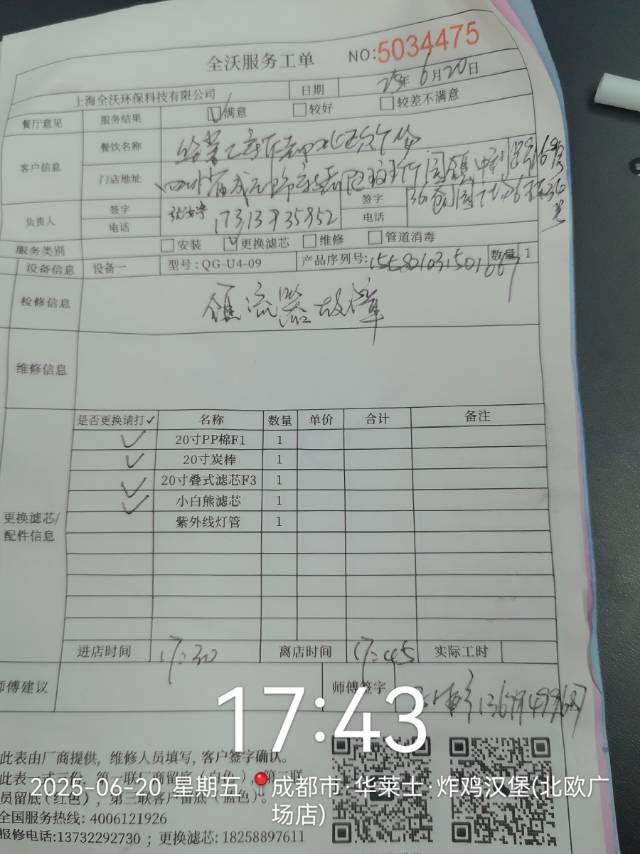 全沃服务工单 NO:5034475
上海全沃环保科技有限公司 日期 25年6月20日
餐厅意见 服务结果 ☑满意 □较好 □较差不满意
客户信息 餐饮名称
门店地址 四川省成都
负责人 签字 签字
电话 17313935852 电话
服务类别 □安装 ☑更换滤芯 □维修 □管道消毒
设备信息 设备一 型号:QG-U4-09 产品序列号: 数量 1
检修信息 镇流器故障
维修信息
是否更换请打✓ 名称 数量 单价 合计 备注
✓ 20寸PP棉F1 1
✓ 20寸炭棒 1
✓ 20寸叠式滤芯F3 1
✓ 小白熊滤芯 1
紫外线灯管 1
更换滤芯/
配件信息
进店时间 17:30 离店时间 17:45 实际工时
师傅建议 师傅签字
17:43
此表由厂商提供，维修人员填写，客户签字确认。
此表一式三份，第一联厂商留底（白色），第二联
2025-06-20 星期五 成都市·华莱士·炸鸡汉堡(北欧广
场店)
员留底(红色)，第三联客户留底（蓝色）。
全国服务热线: 4006121926
报修电话:13732292730 ; 更换滤芯: 18258897611